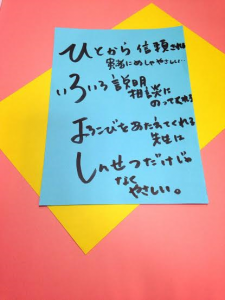 ひとから信頼される
患者にめしゃやさしい…
いろいろ説明
相談に
のってくれる
よろこびをあたえてくれる
先生に
しんせつだけじゃ
なく
やさしい。